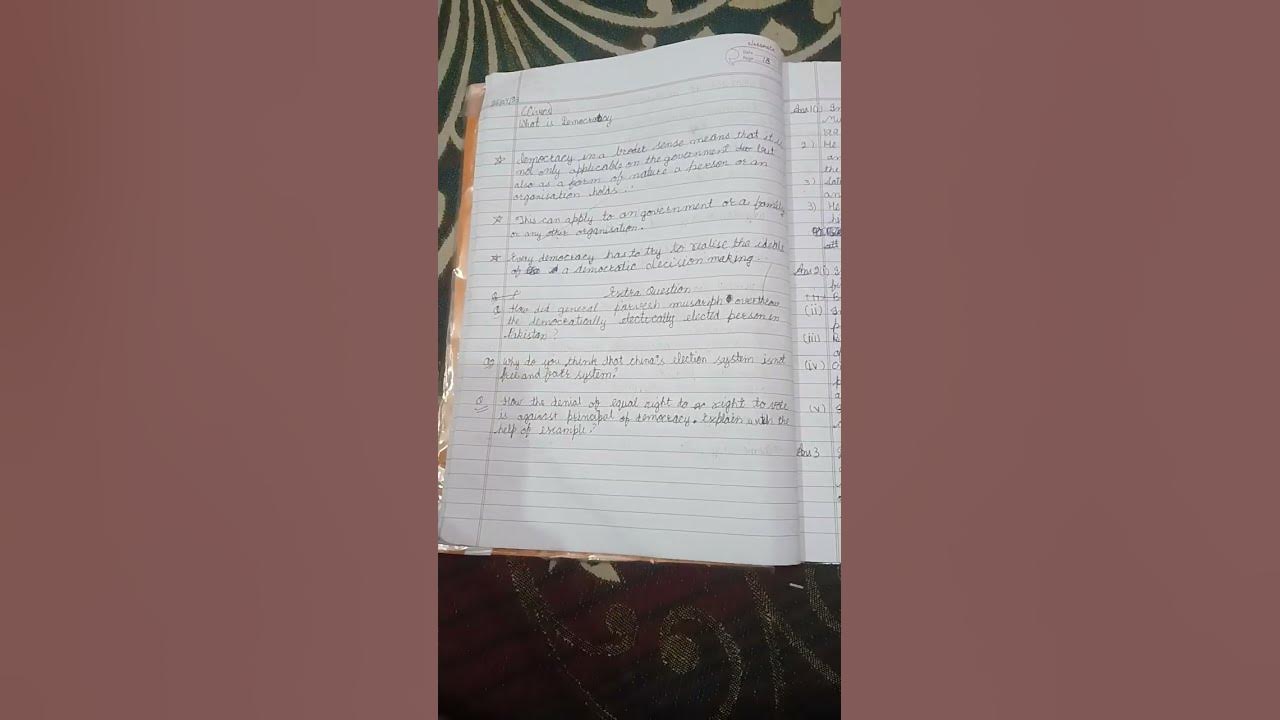 classmate
Date
Page 18
(Civics)
What is Democracy
☆ Democracy in a broder sense means that it is
not only applicable on the government but
also as a form of nature a person or an
organisation holds..
☆ This can apply to an government or a family
or any other organisation.
☆ Every democracy has to try to realise the ideals
of a democratic decision making..
Extra Question
Q How did general parvesh musarph overthrow
the democratically electically elected person in
Pakistan?
Q2 Why do you think that china's election system is not
free and fair system?
Q How the denial of equal right to right to vote
is against principal of democracy. Explain with the
help of example?
Ans 1 (i)
2) He
an
the
3)
an
3) He
Ans 2 (i)
(ii)
(iii)
(iv)
(v)
Ans 3